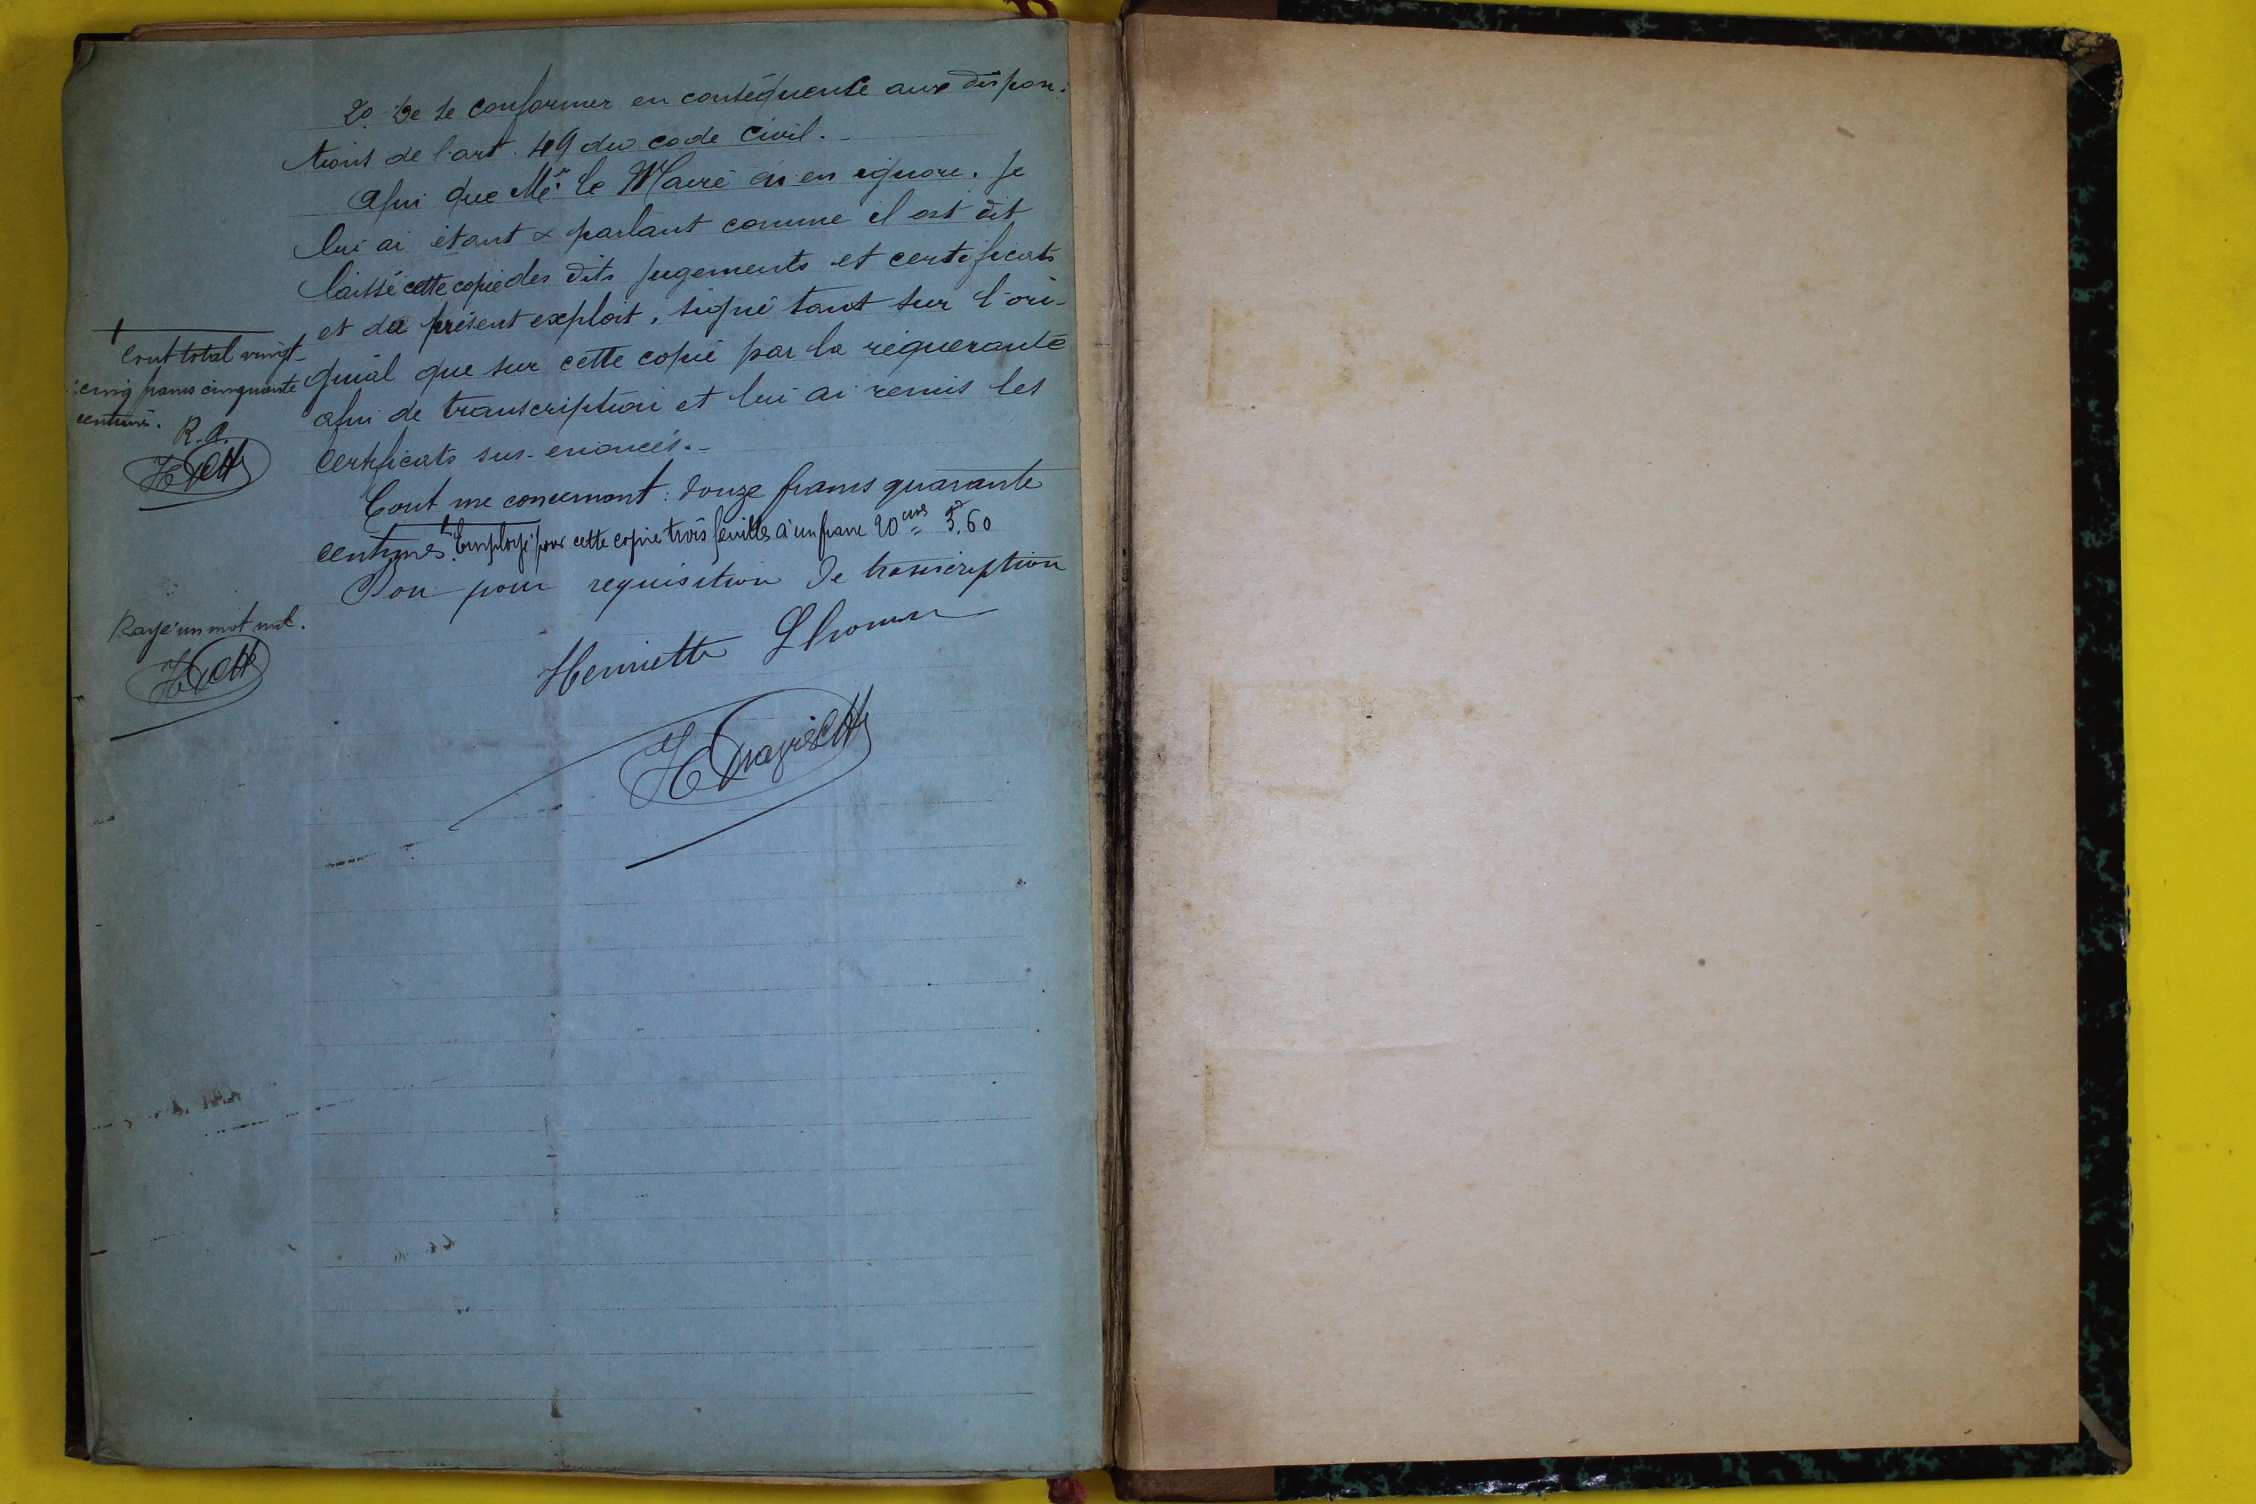 2º De se conformer en conséquence aux disposi-
tions de l'art. 49 du code civil.
Afin que Mr le Maire n'en ignore. Je
lui ai étant & parlant comme il est dit
laissé cette copie des dits jugements et certificats
et du présent exploit, signé tant sur l'ori-
ginal que sur cette copie par la requerante
afin de transcription et lui ai remis les
certificats sus-enoncés.-
Cout me concernant : douze francs quarante
centimes. Employé pour cette copie trois feuilles à un franc 20 cmes 3.60
Bon pour requisition de transcription
Henriette
Cout total vingt-
cinq francs cinquante
centimes.
Rayé un mot nul.